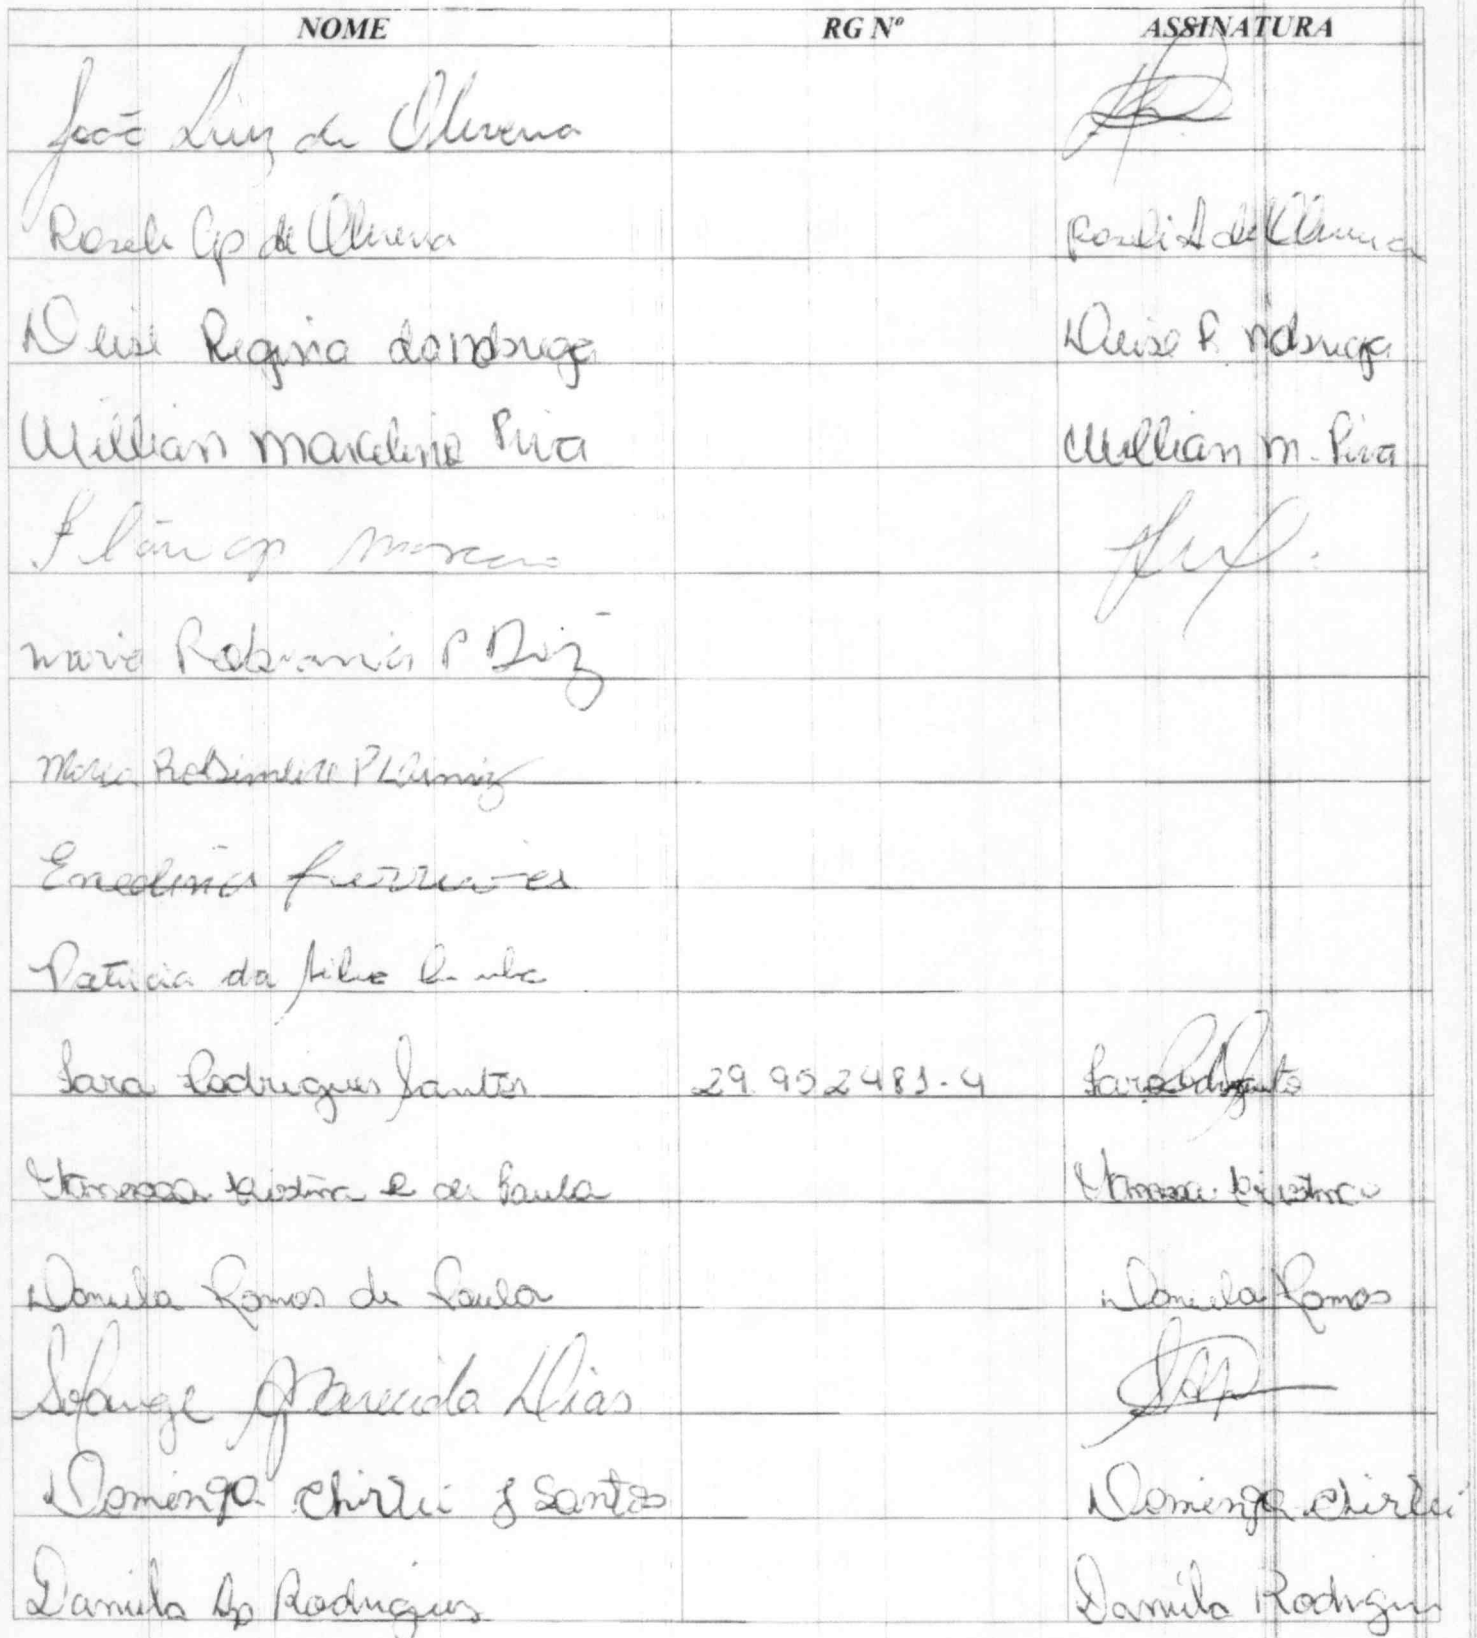 NOME RG Nº ASSINATURA
João Luiz de Oliveira
Roseli Ap de Oliveira Roseli A de Oliveira
Deise Regina da Nobrega Deise R. Nobrega
Willian Marcelino Piva Willian M. Piva
ap
Maria P Diz
Maria
Enedina
Patricia da Silva
Sara Rodrigues Santos 29.952481-4 Sara
Vanessa Cristina R de Paula Vanessa Cristina
Daniela Ramos de Paula Daniela Ramos
Solange Aparecida Dias
Dominga Chirlei J Santos Dominga Chirlei
Daniela Ap Rodrigues Daniela Rodrigues